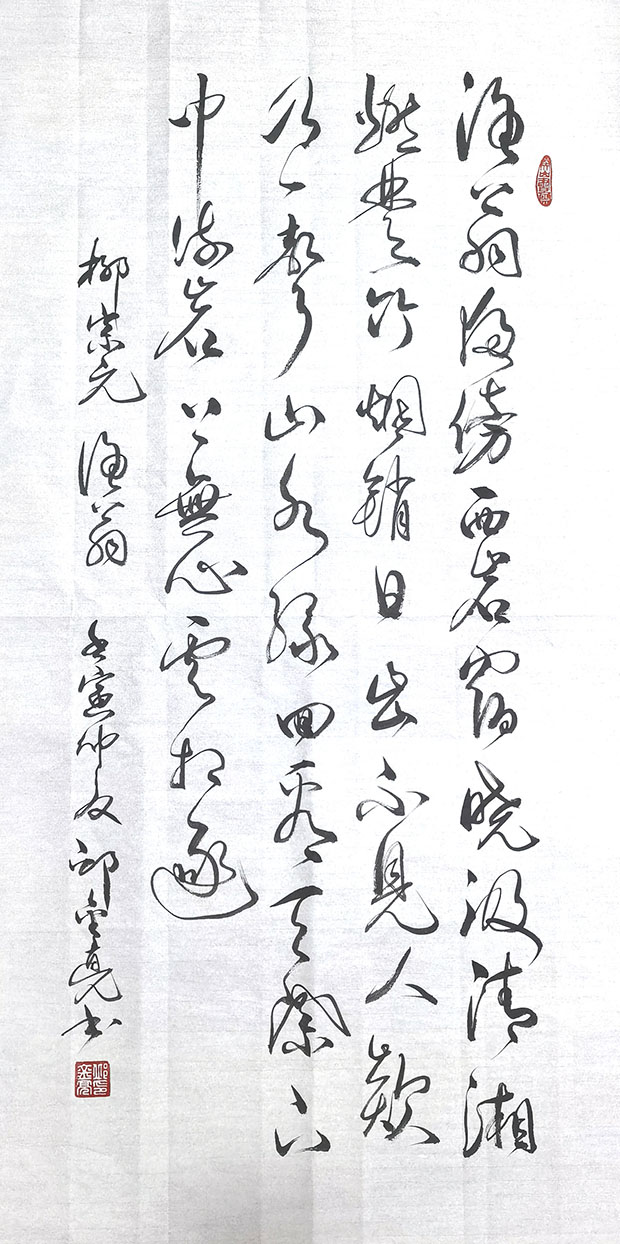 漁翁夜傍西岩宿晓汲清湘
燃楚竹烟銷日出不見人欸
乃一聲山水绿回看天際下
中流岩上無心雲相逐
柳宗元 漁翁 壬寅仲夏 邱金亮书